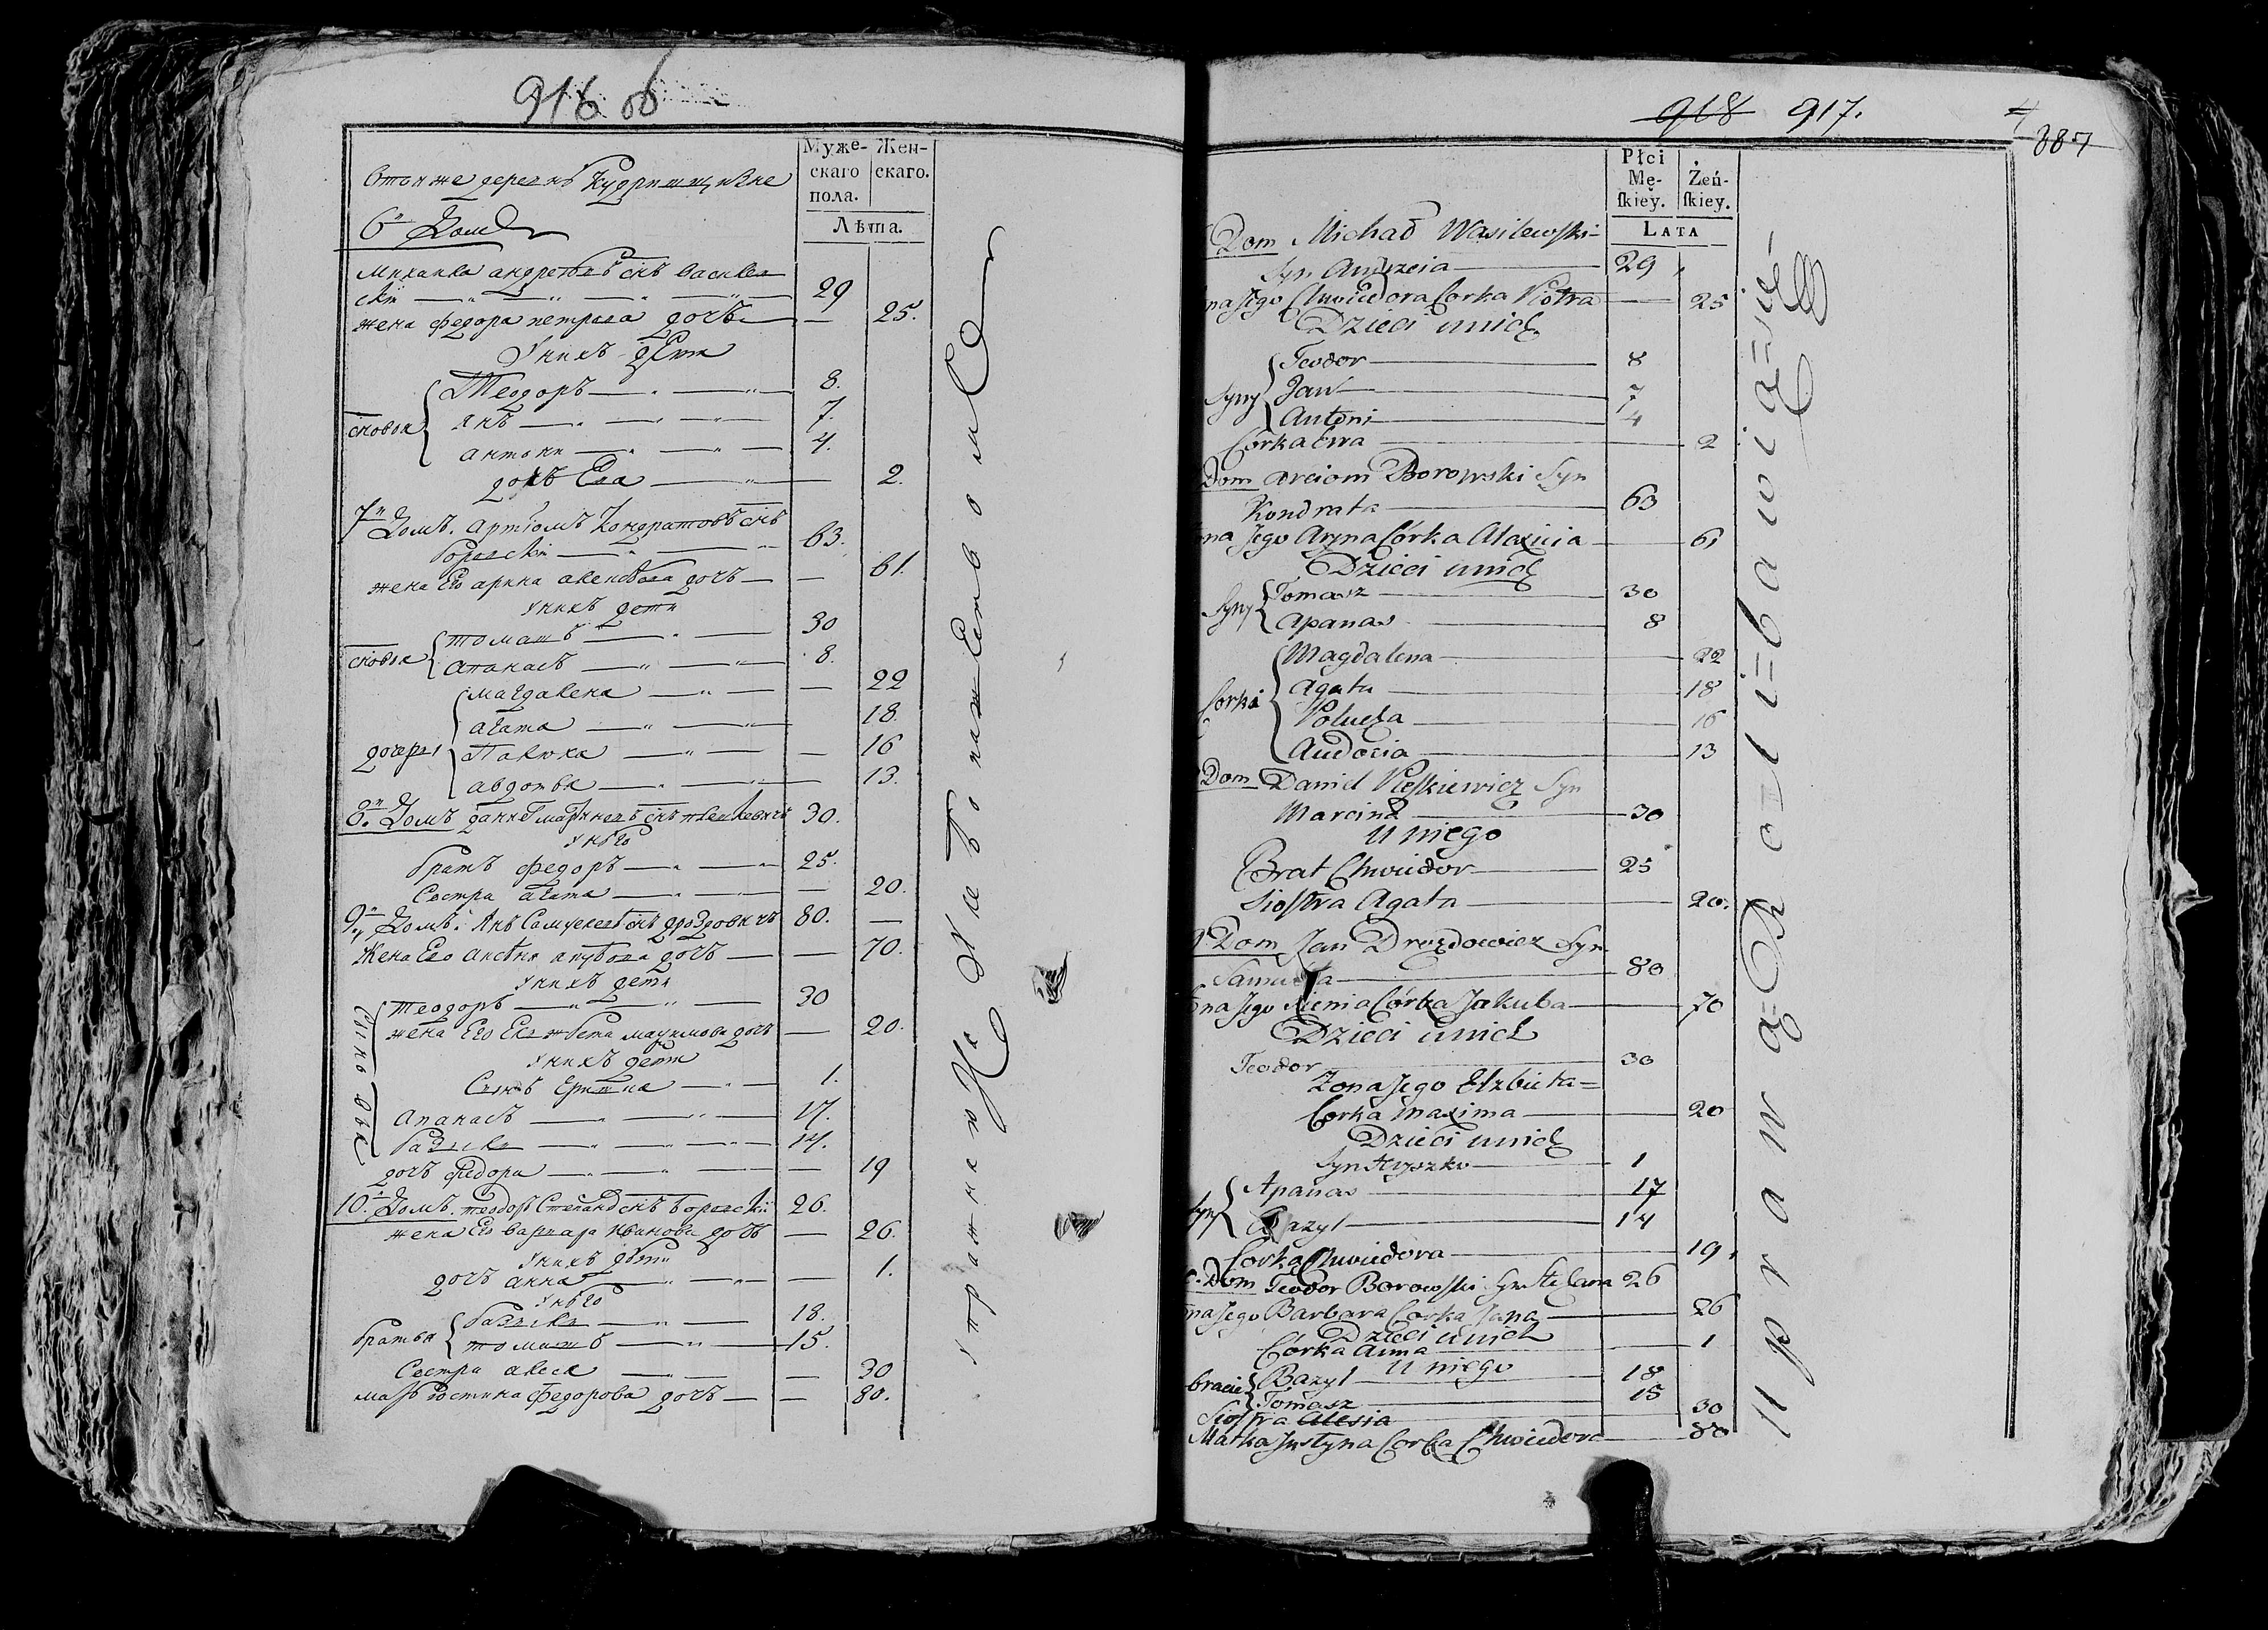 916 об
Муже-
скаго
пола.
Жен-
скаго.
Лѣта.
Втой же деревнѣ
6й Домъ
Михайла андреевъ снъ василев
скій 29
жена федора петрова дочь 25.
Унихъ дети
сновья
Теодоръ 8.
Янъ 7.
антони 4.
дочь Ева 2.
7й Домъ. Артіомъ Кондратовъ снъ
боровскій 63.
жена Его арина дочь 61.
Унихъ дети
сновья
томашъ 30
Апанасъ 8.
дочери
магдалена 22
агата 18.
Палюха 16
авдотья 13.
8й Домъ данил мартинов снъ 30.
Унего
братъ федоръ 25.
Сестра агата 20.
9й Домъ. Янъ Самуелевъ снъ дроздовичъ 80.
Жена Его дочь 70.
Унихъ дети
Теодоръ 30
жена Его Елжбета махимова дочь 20.
Унихъ дети
Сынъ 1.
Апанасъ 17.
базыли 14.
дочь федора 19
10. Домъ. теодор Стефанов снъ боровскій 26.
жена Его варвара Иванова дочь 26.
Унихъ дети
дочь анна 1.
Унего
братья
базыли 18.
томашъ 15.
Сестра алеся 30
мать Юстина федорова дочь 80.
918 917.
4
887
Płci
Mę-
ſkiey.
Żeń-
ſkiey.
LATA
Dom Michał Wasilewski
Syn Andrzeia 29
na Jego Chwiedora Corka Piotra 25
Dzieci unich
Syny
Teodor 8
Jan 7
Antoni 4
Córka Ewa 2
Dom Arciom Borowski Syn
Kondrata 63
na Jego Aryna Córka Alaxieia 61
Dzieci unich
Syny
Tomasz 30
Apanas 8
Corki
Magdalena 22
Agata 18
16
Audocia 13
Dom Daniel Pieſkiewicz Syn
Marcina 30
U niego
Brat Chwiedor 25
Siostra Agata 20.
9 Dom Jan Drozdowicz Syn
Samuela 80
na Jego Córka Jakuba 70
Dzieci unich
Teodor 30
Zona Jego Elzbieta
Corka Maxima 20
Dzieci unich
Syn Hryszko 1
Syny
Apanas 17
Bazyl 14
Corka Chwiedora 19
Dom Teodor Borowski Syn Stefana 26
na Jego Barbara Corka Jana 26
Dzieci unich
Córka Anna 1
U niego
bracia
Bazyl 18
Tomasz 15
Siostra Alesia 30
Matka Justyna Corka Chwiedora 80